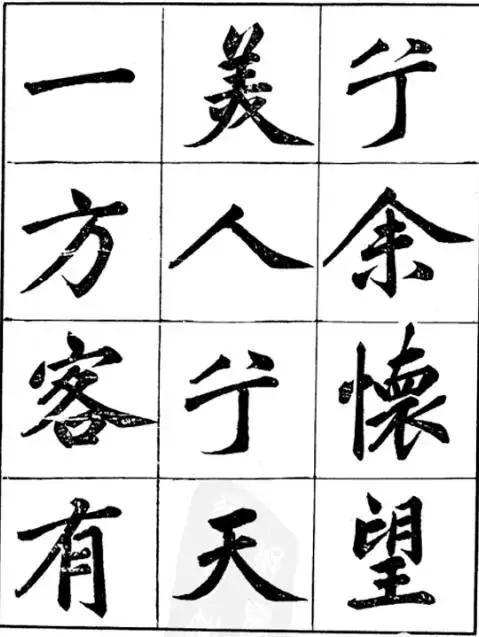 兮余懷望
美人兮天
一方客有